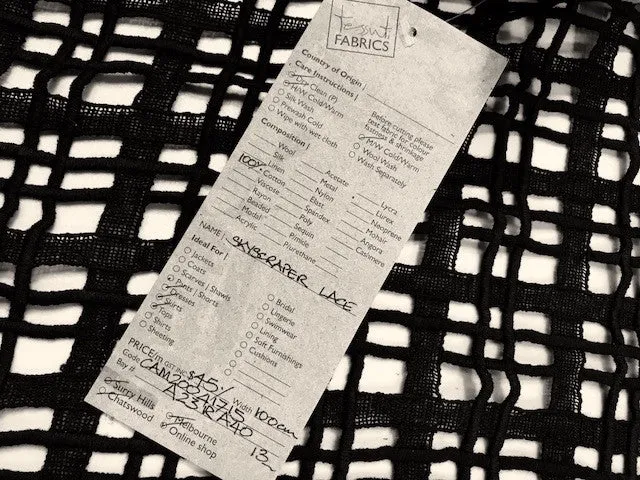 Tessuti
FABRICS
Country of Origin |
Care Instructions |
Dry Clean (P)
H/W Cold/Warm
Silk Wash
Prewash Cold
Wipe with wet cloth
Before cutting please
test fabric for colour
fastness & shrinkage
M/W Cold/Warm
Wool Wash
Wash separately
Composition |
Wool
Silk
Linen
100% Cotton
Viscose
Rayon
Beaded
Modal
Acrylic
Acetate
Metal
Nylon
Elast
Spandex
Poly
Sequin
Pinide
Plurethane
Lycra
Lurex
Neoprene
Mohair
Angora
Cashmere
NAME | SKYSCRAPER LACE
Ideal For |
Jackets
Coats
Scarves | Shawls
Pants | Shorts
Dresses
Skirts
Tops
Shirts
Sheeting
Bridal
Lingerie
Swimwear
Lining
Soft Furnishings
Cushions
PRICE/m GST inc $45/- Width 100cm
Code CAM200A1715
Bay # A331RA40 13
Surry Hills
Chatswood
Melbourne
Online shop